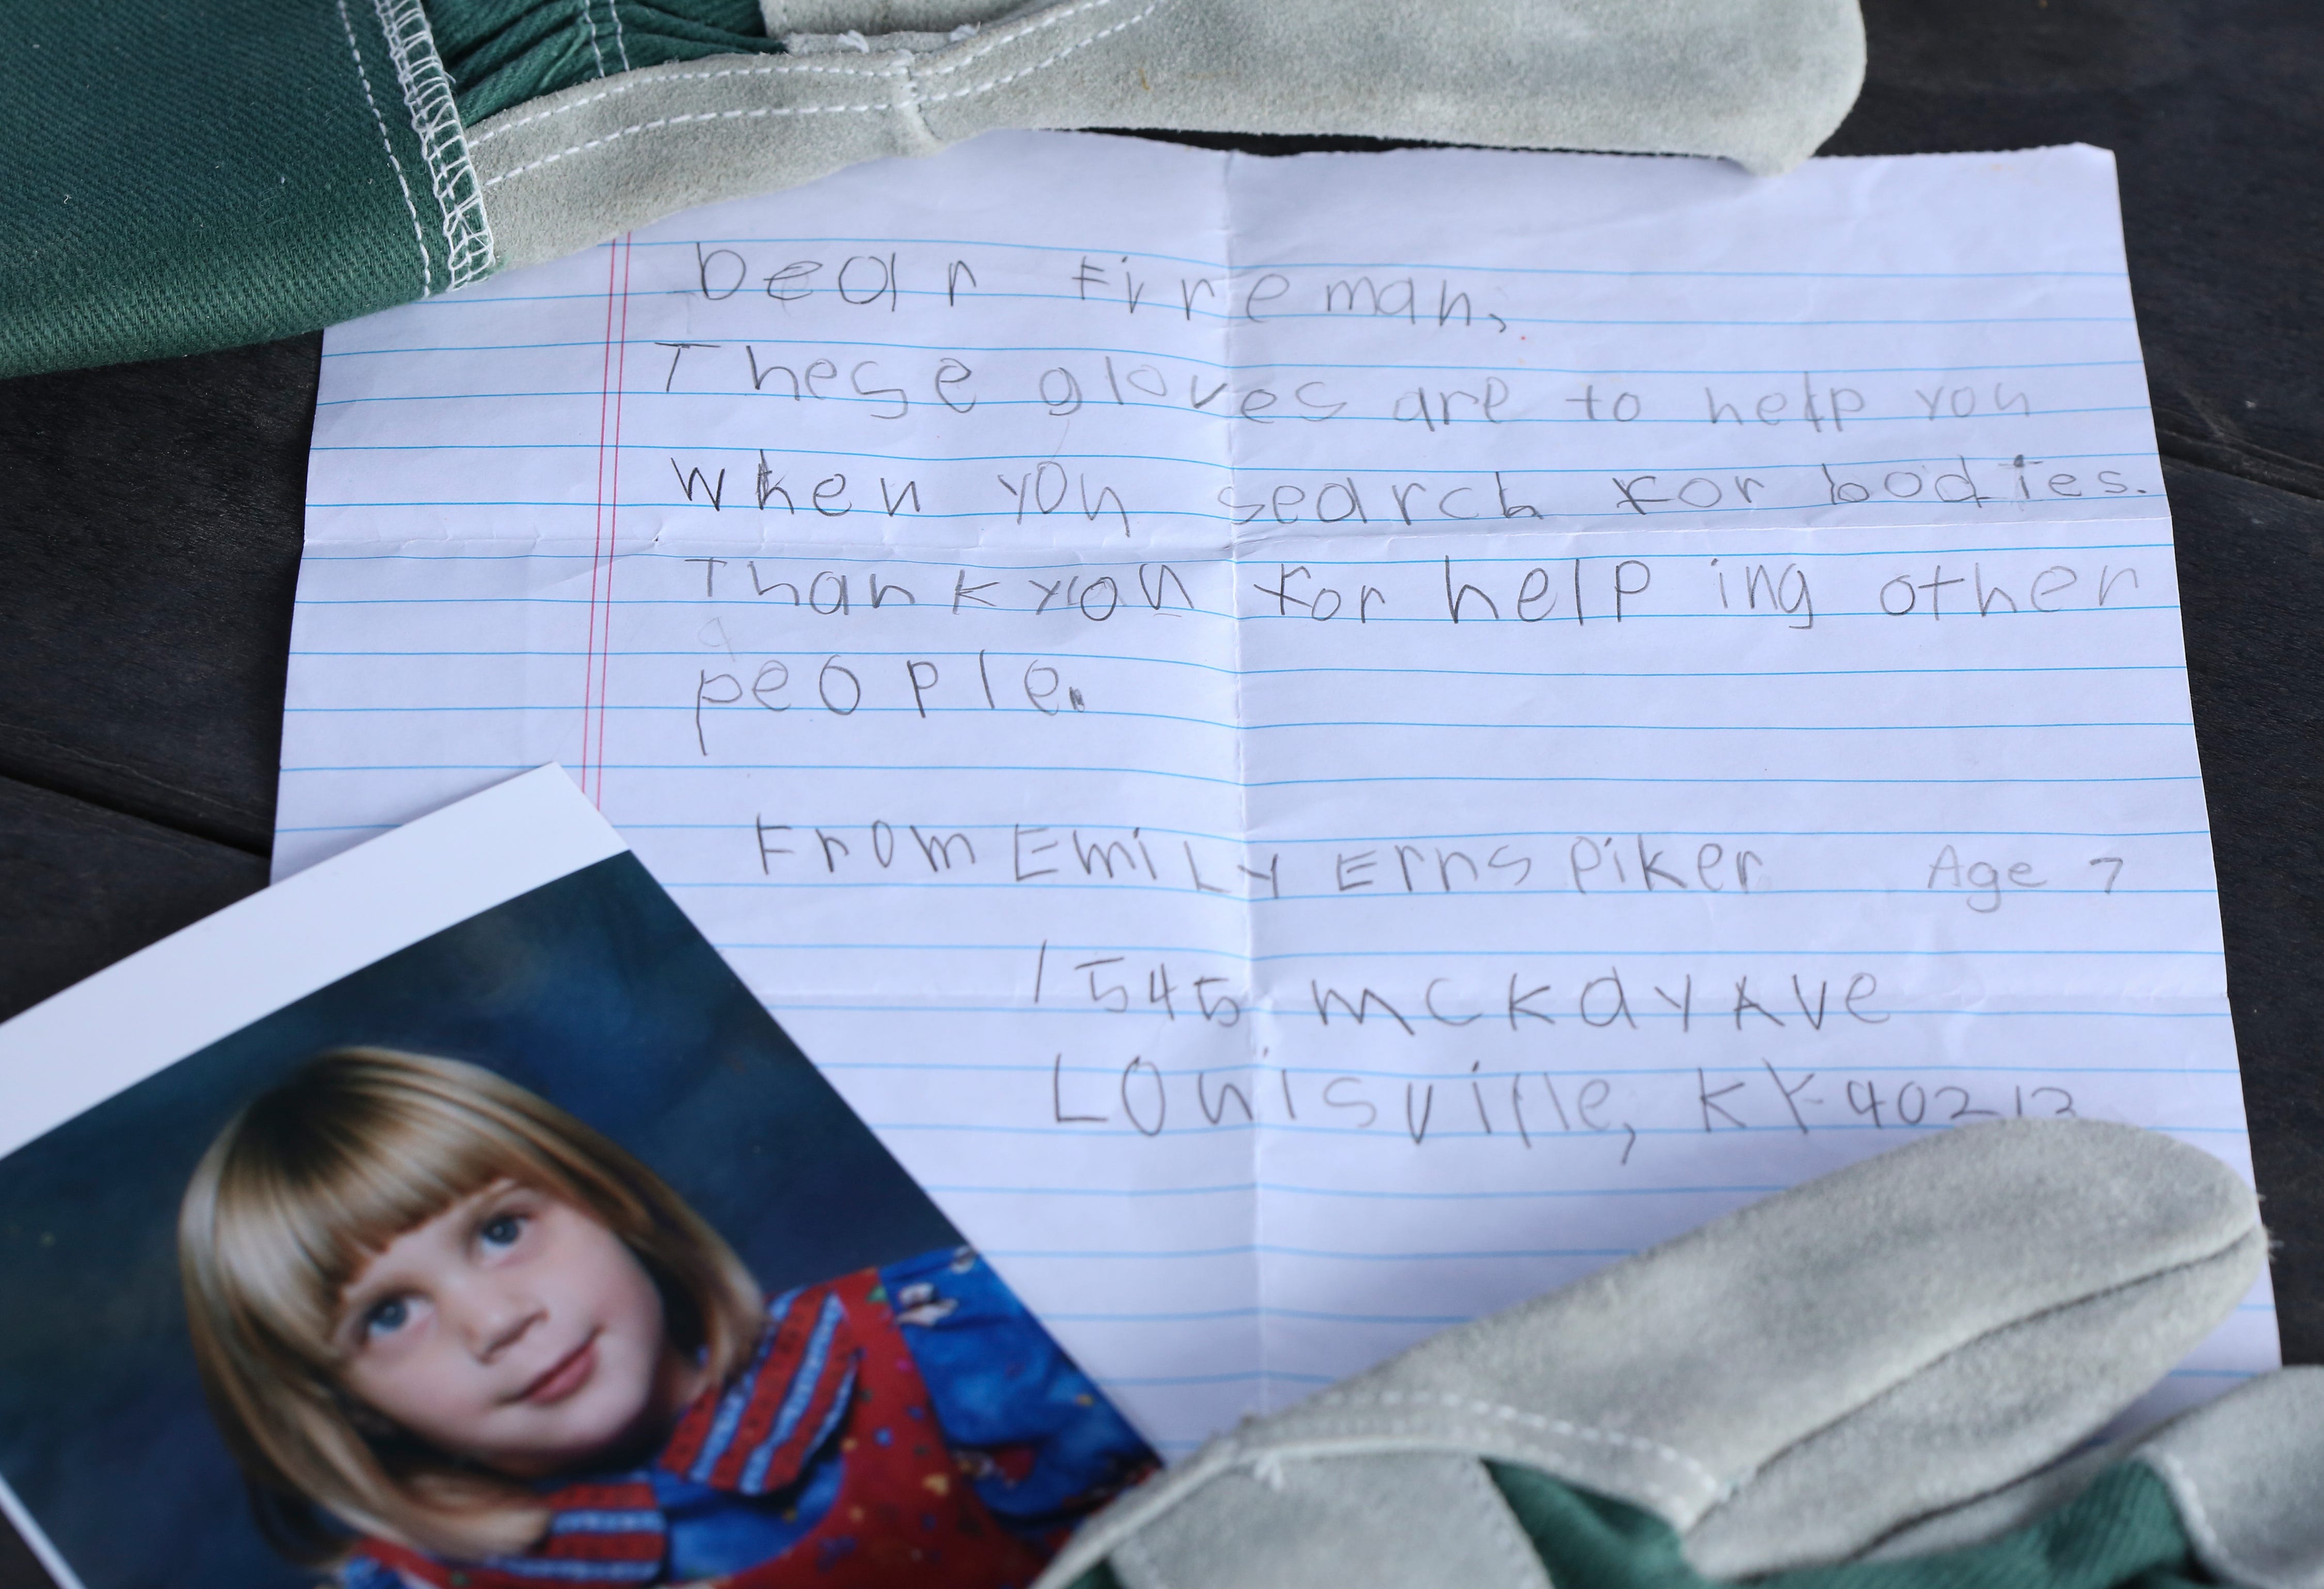 Dear Fireman,
These gloves are to help you
when you search for bodies.
Thankyou for helping other
people.
From Emily Ernspiker Age 7
1545 mckay Ave
Louisville, KY 40213